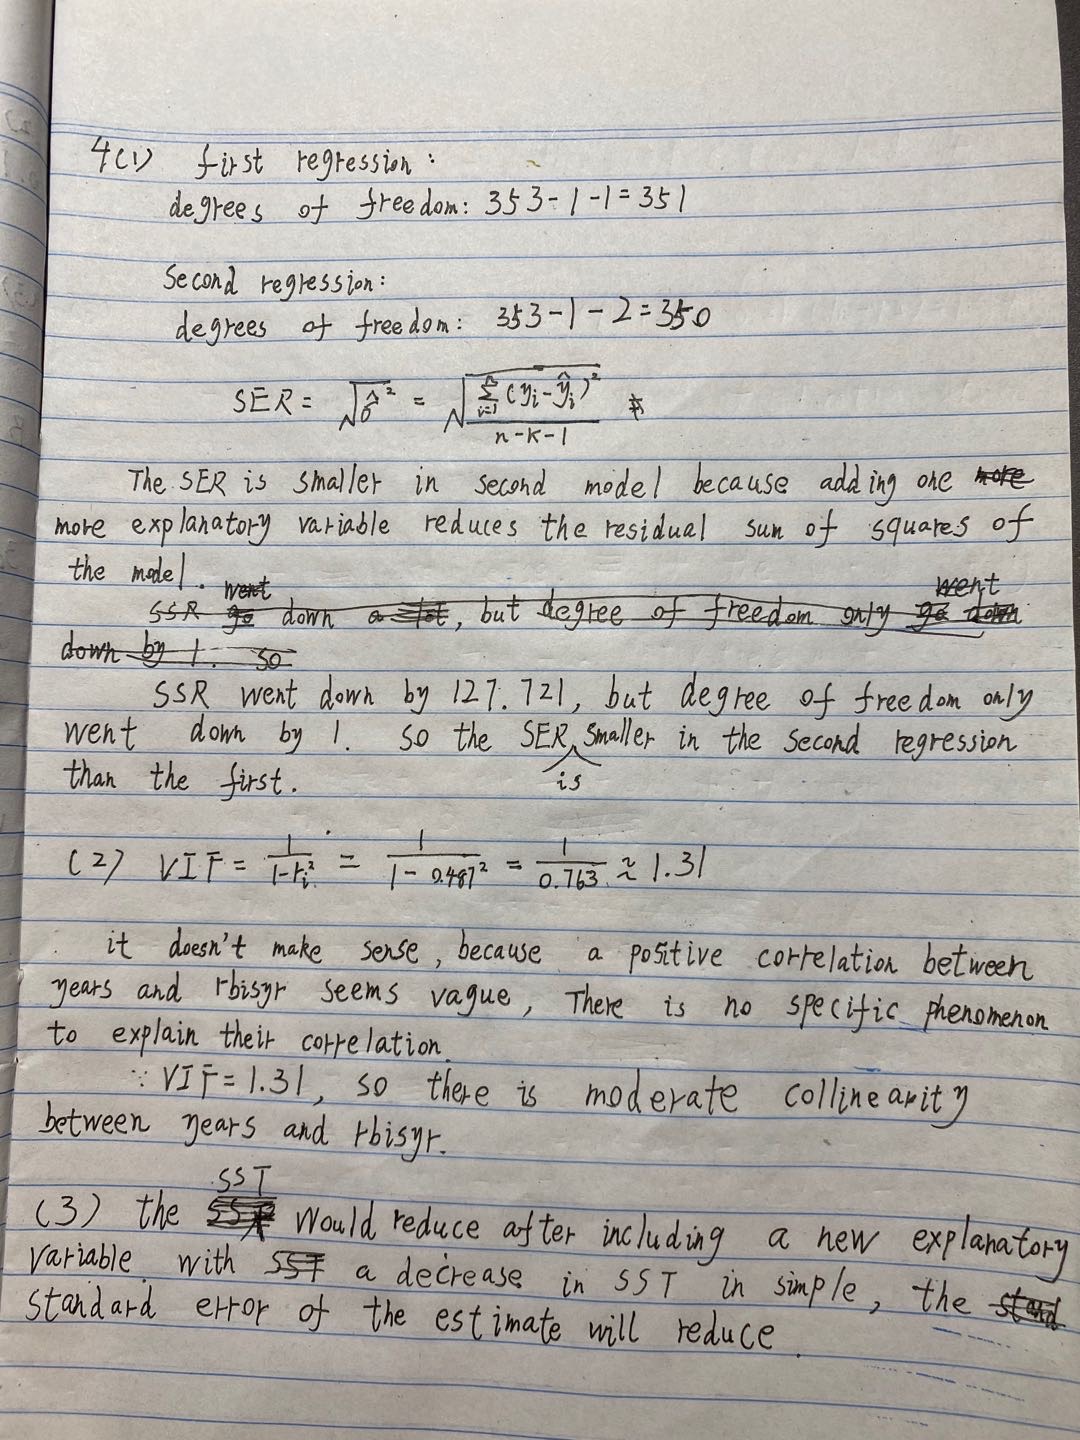 4(1) first regression:
degrees of freedom: 353-1-1=351
Second regression:
degrees of freedom: 353-1-2=350
SER = √σ̂² = √(∑ᵢ₌₁ⁿ(yᵢ-ŷᵢ)² / n-k-1)
The SER is smaller in second model because adding one more
more explanatory variable reduces the residual sum of squares of
the model.
went went
SSR go down a lot, but degree of freedom only go down
down by 1. so
SSR went down by 127.721, but degree of freedom only
went down by 1. so the SER smaller in the second regression
is
than the first.
(2) VIF = 1/(1-rᵢ²) = 1/(1-0.487²) = 1/0.763 ≈ 1.31
it doesn't make sense, because a positive correlation between
years and rbisyr seems vague, There is no specific phenomenon
to explain their correlation.
∵ VIF=1.31, so there is moderate collinearity
between years and rbisyr.
SST
(3) the would reduce after including a new explanatory
variable. with SST a decrease in SST in simple, the stand
standard error of the estimate will reduce.